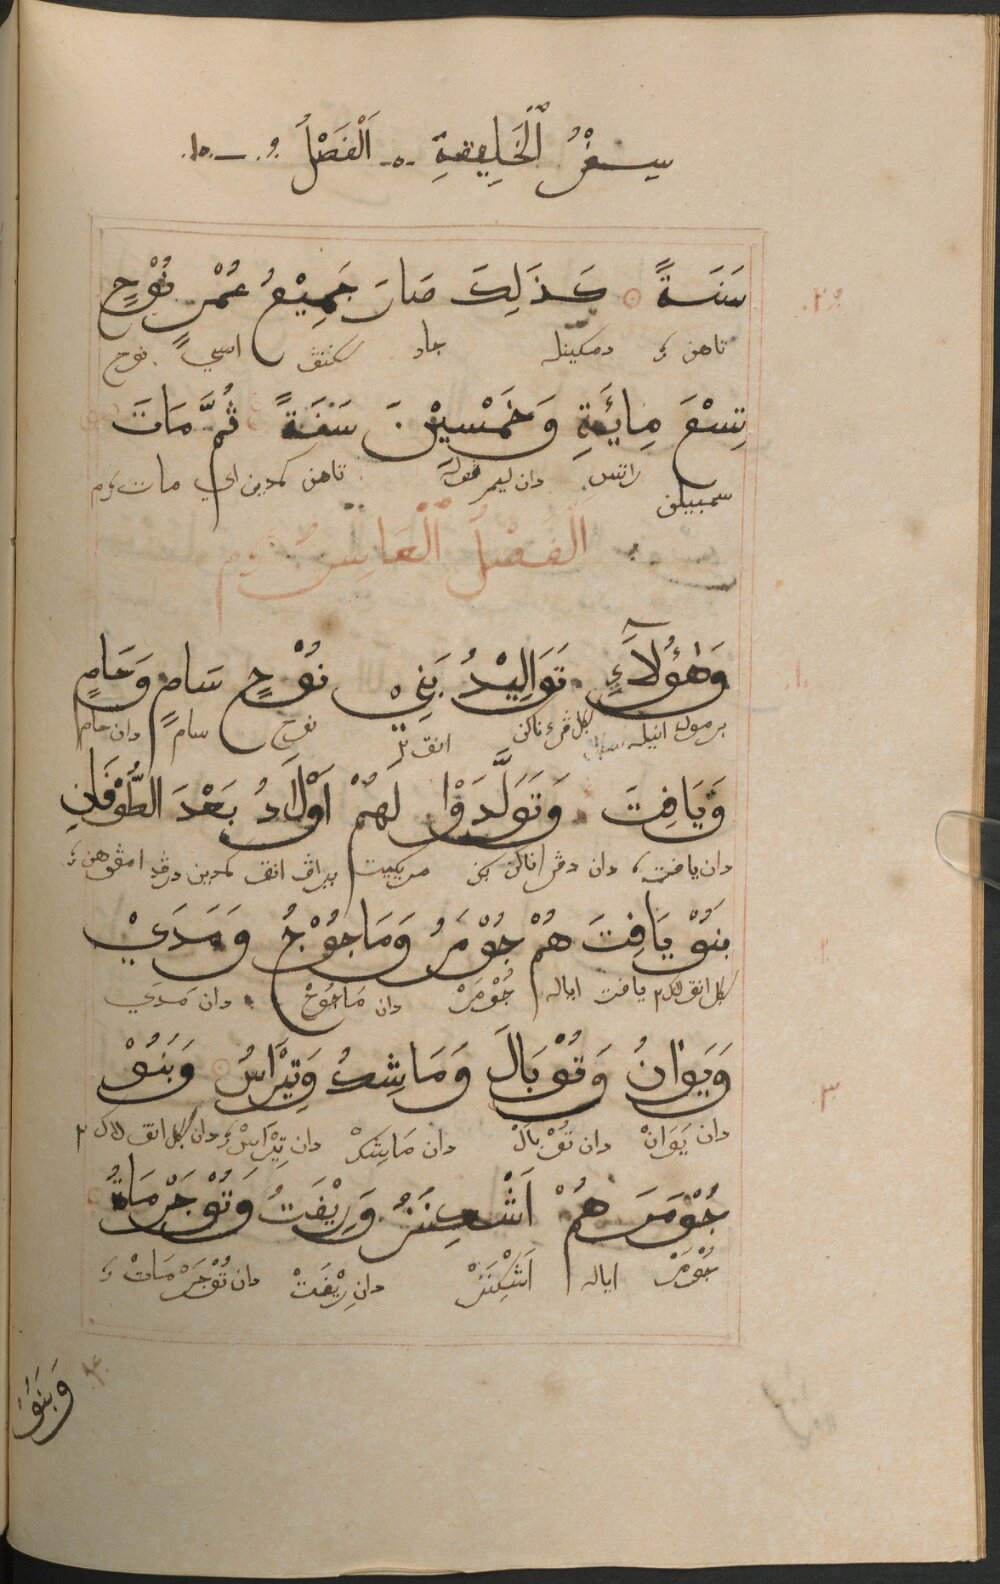 سِفْرُ ٱلْخَلِيقَةِ -ه- اَلْفَصْلُ ٩. — ١٠.
سَنَةً كَذَلِكَ صَارَ جَمِيْعُ عُمْرِ نُوْحٍ ٢٩
تاهن دمكينله جاد سكنڤ اسي نوح
تِسْعَ مِائَةٍ وَخَمْسِيْنَ سَنَةً ثُمَّ مَاتَ
سمبيلن راتس دان ليم ڤوله تاهن كمدين اي مات
اَلْفَصْلُ اَلْعَاشِرُ
وَهٰؤُلَآءِ تَوَالِيْدُ بَنِيْ نُوْحٍ سَامٍ وَحَامٍ ١.
برمول انيله انق نوح سام دان حام
وَيَافِتَ وَتَوَلَّدَوْا لَهُمْ اَوْلَادُ بَعْدَ الطُّوْفَانِ
دان يافت دان دڤراناكن مريكيت ببراڤ انق كمدين درڤد امڤوهن
بَنُوْ يَافِتَ هُمْ جُوْمَرُ وَمَاجُوْجُ وَمَدَيْ ٢
يافت اياله جُوْمَرْ دان مَاجُوْجْ دان مَدَيْ
وَيَوَانُ وَتُوْبَالَ وَمَاشِكُ وَتِيْرَاسُ وَبَنُوْ ٣
دان يَوَانْ دان تُوْبَالْ دان مَاشِكْ دان تِيْرَاسْ دان
جُوْمَرَ هُمْ اَشْكِنَزُ وَرِيْفَتُ وَتُوْجَرْمَاةُ
جُوْمَرْ اياله اَشْكِنَزْ دان رِيْفَتْ دان تُوْجَرْمَاتْ
وَبَنُوْ